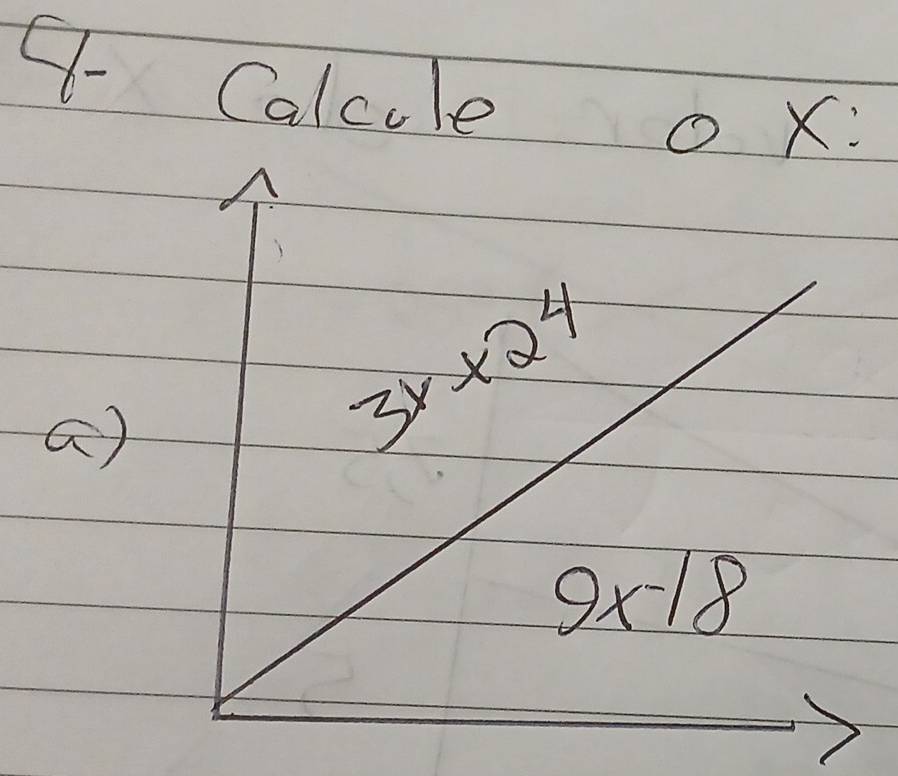 4- Calcule o X:
a)
3x x 2⁴
9x-18